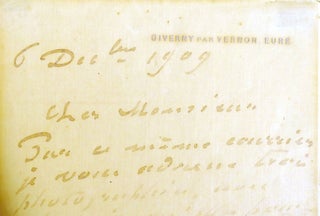 GIVERNY PAR VERNON, EURE
6 Decbre 1909
Cher Monsieur
Par ce même courrier
je vous adresse trois
photographies